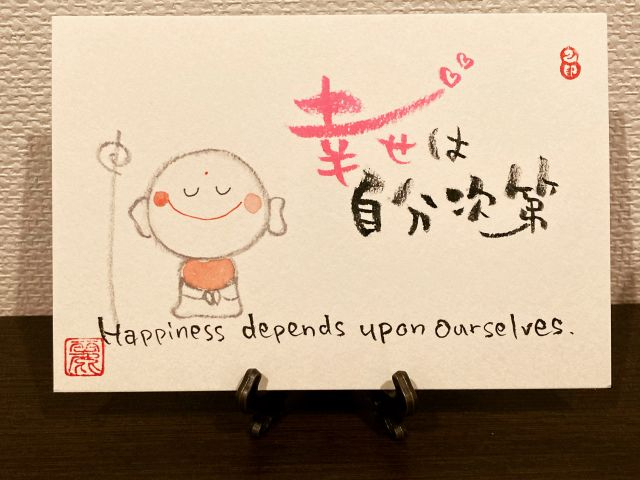 幸せは
自分次第
Happiness depends upon ourselves.